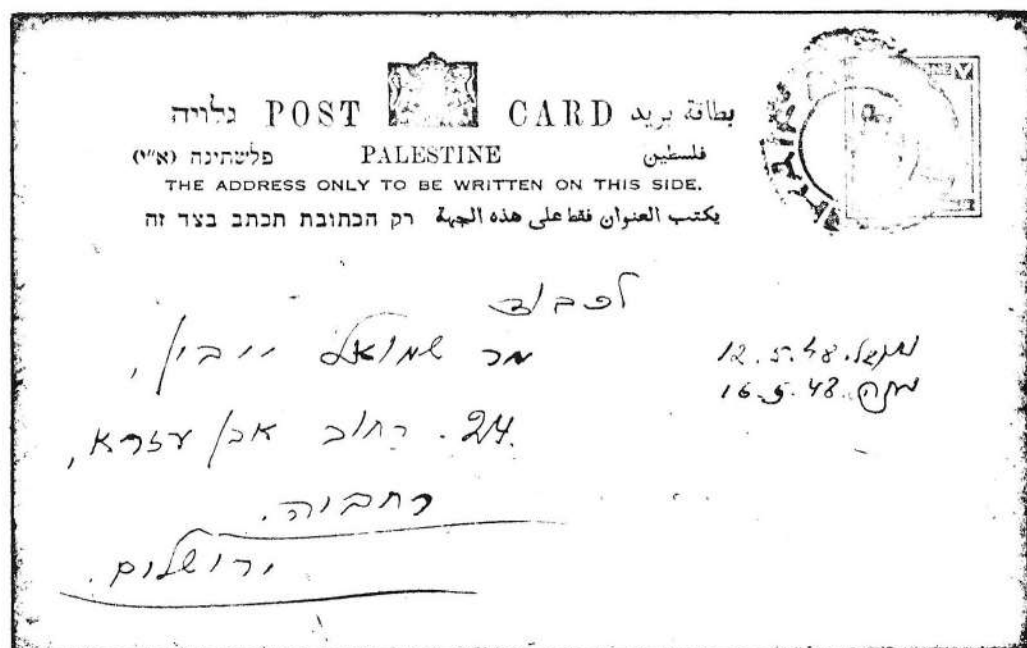 גלויה POST CARD بطاقة بريد
פלשתינה (א״י) PALESTINE فلسطين
THE ADDRESS ONLY TO BE WRITTEN ON THIS SIDE.
يكتب العنوان فقط على هذه الجهة רק הכתובת תכתב בצד זה
לכבוד
מר שמואל ייבין,
24. רחוב אבן עזרא,
רחביה.
ירושלים.
נתקבל. 12.5.48
נענה. 16.5.48